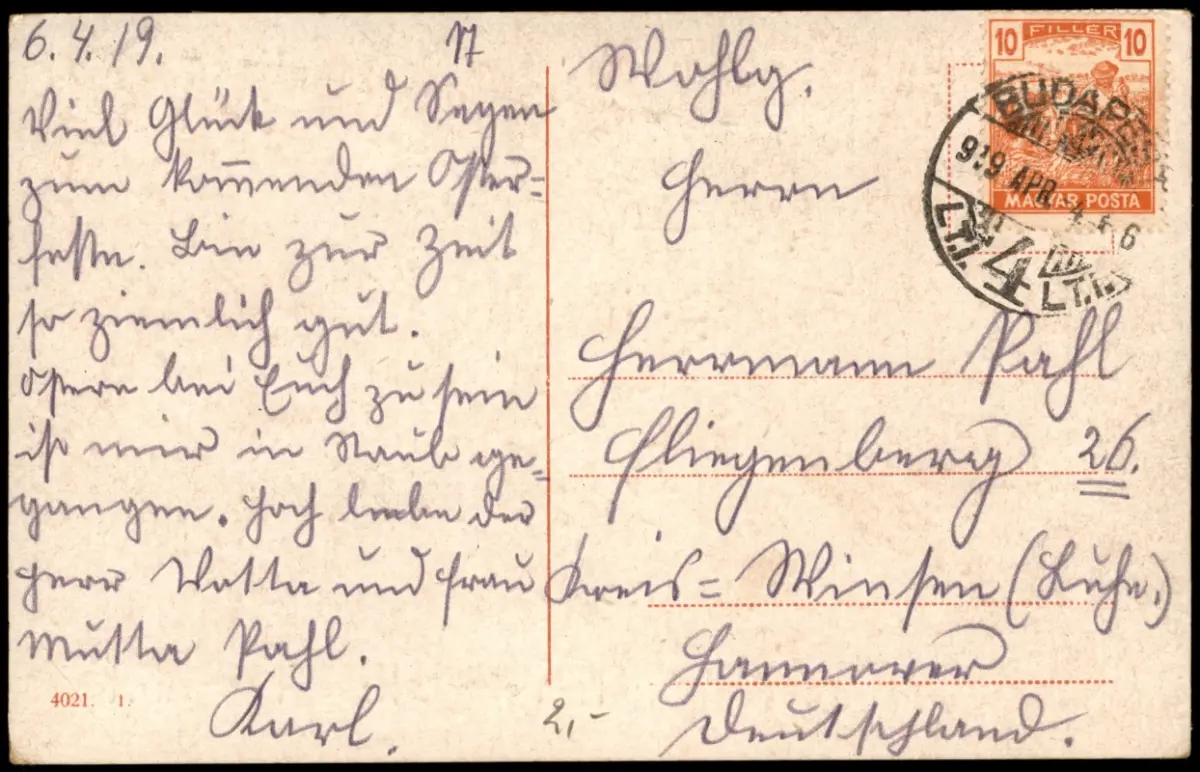 6.4.19.
Viel Glück und Segen
zum kom̅enden Oster-
feste. Bin zur Zeit
so ziemlich gut.
Ostern bei Euch zu sein
ist mir in Staub ge-
gangen. Hoch lebe der
Herr Votta und Frau
Mutta Pahl.
Karl.
4021. 1.
2,-
Wohlg.
Herrn
Herrmann Pahl
Fliegenberg 26.
Kreis= Winsen (Luhe.)
Hannover
Deutschland.
10 FILLÉR 10
MAGYAR POSTA
BUDAPEST
919 APR
4
L.T.I.